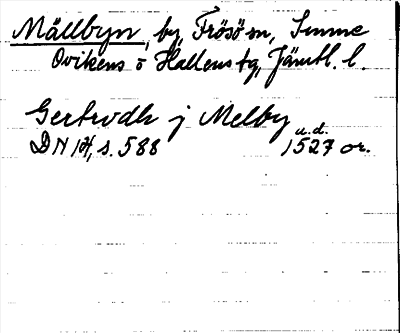 Mällbyn, by, Frösö sn, Sunne
Ovikens o Hallens tg, Jämtl. l.
Gertrvdh j Melby
u.d.
DN 14, s. 588 1527 or.